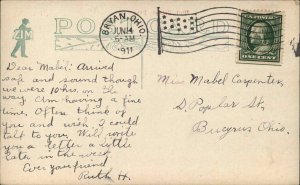 PO
BRYAN, OHIO.
JUN 14
6-AM
1911
ONE CENT
Dear Mabel: Arrived
safe and sound though
we were 10 hrs. on the
way. Am having a fine
time. Often think of
you and wish I could
talk to you. Will write
you a letter a little
later in the week
Ever your friend
Ruth H.
Miss Mabel Carpenter,
S. Poplar St,
Bucyrus Ohio.